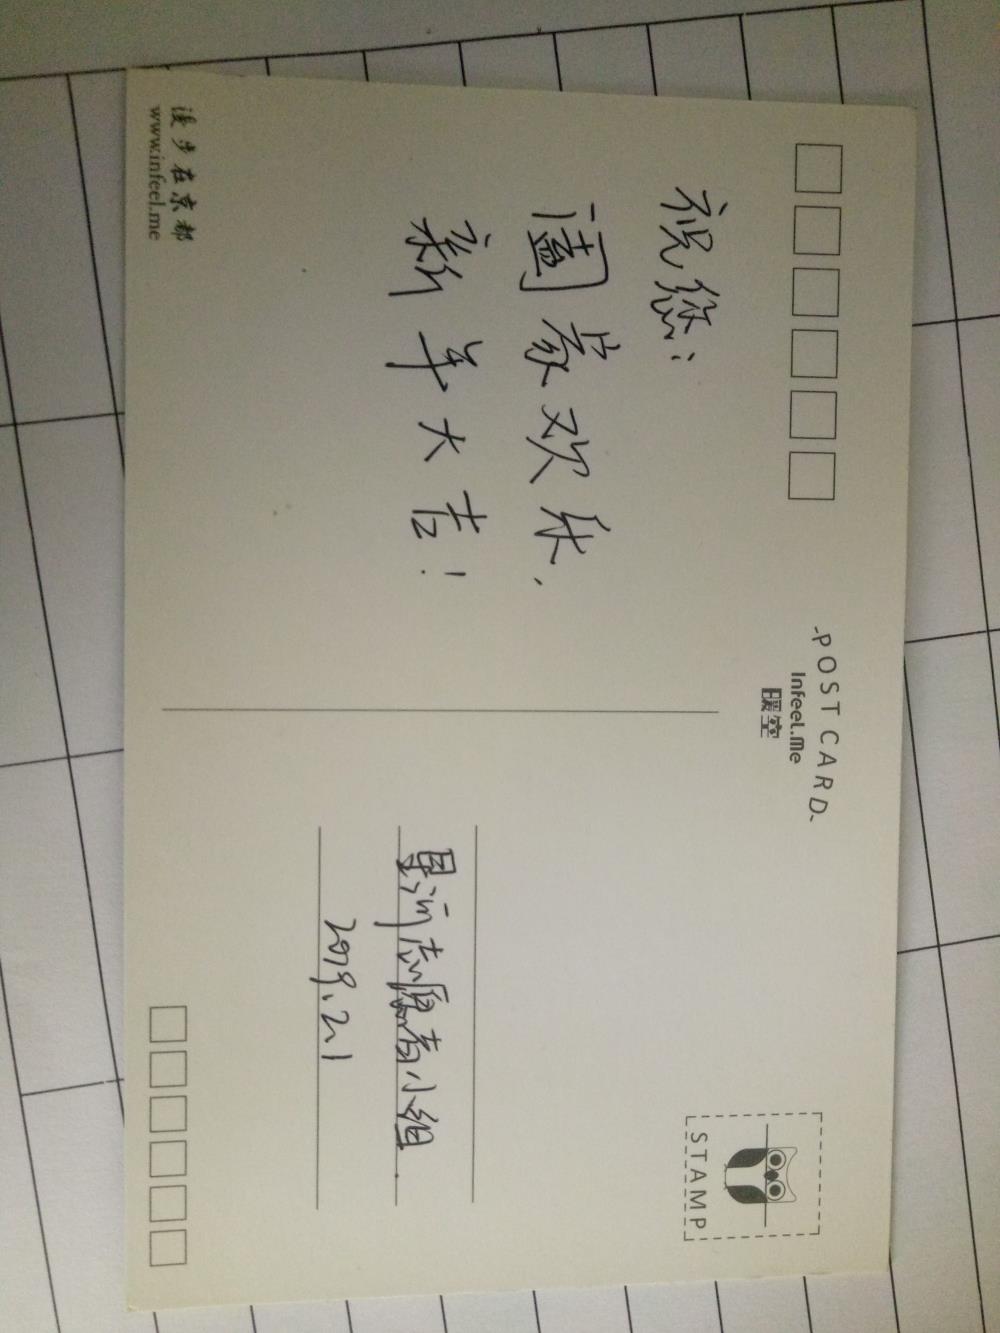 -POSTCARD-
Infeel.Me
暖空
祝您：
阖家欢乐，
新年大吉！
星河志愿者小组.
2019.2.1
STAMP
漫步在京都
www.infeel.me